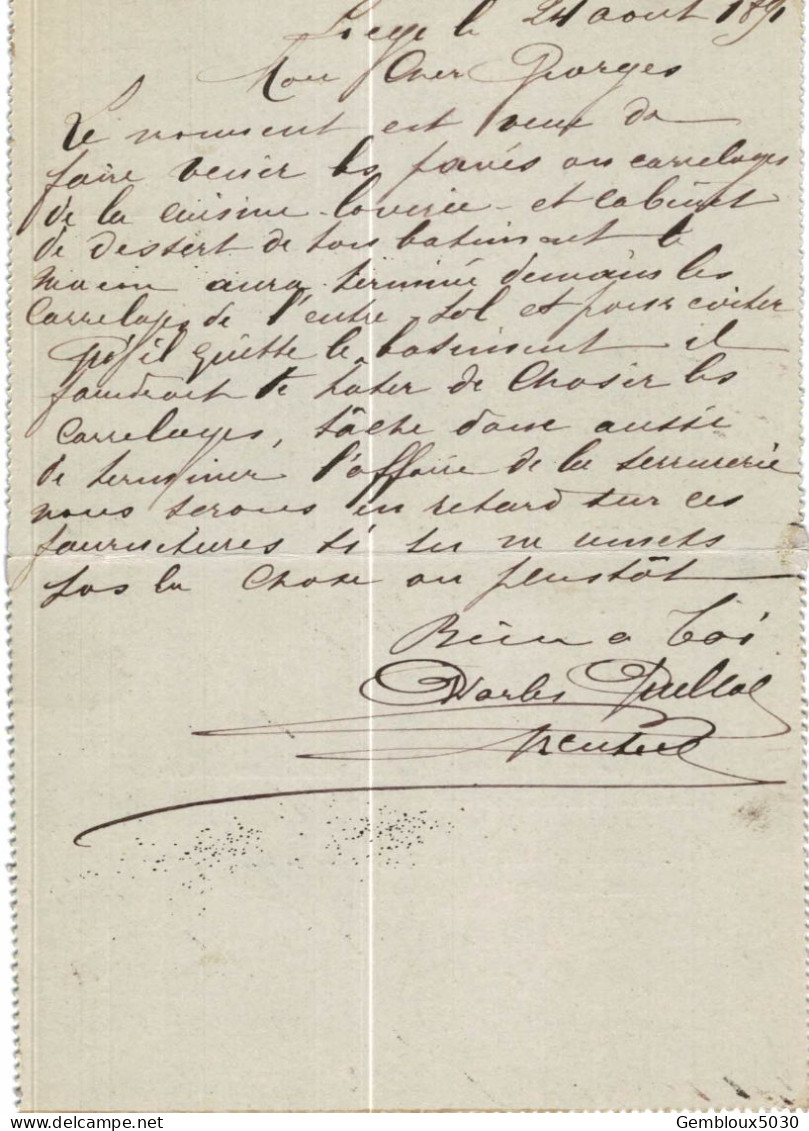 Liège le 24 août 1891
Mon Cher Georges
Le moment est venu de
faire venir les pavés ou carrelages
de la cuisine laverie et cabinet
de dessert de ton batiment le
macon aura terminé demain les
carrelages de l'entre-sol et pour eviter
qu'il quitte le batiment il
faudrait te hater de choisir les
carrelages, tâche donc aussi
de terminer l'affaire de la serrurerie
nous serons en retard sur ces
fournitures si tu ne remets
pas la chose au plustôt
Bien a toi
Charles
Gembloux5030